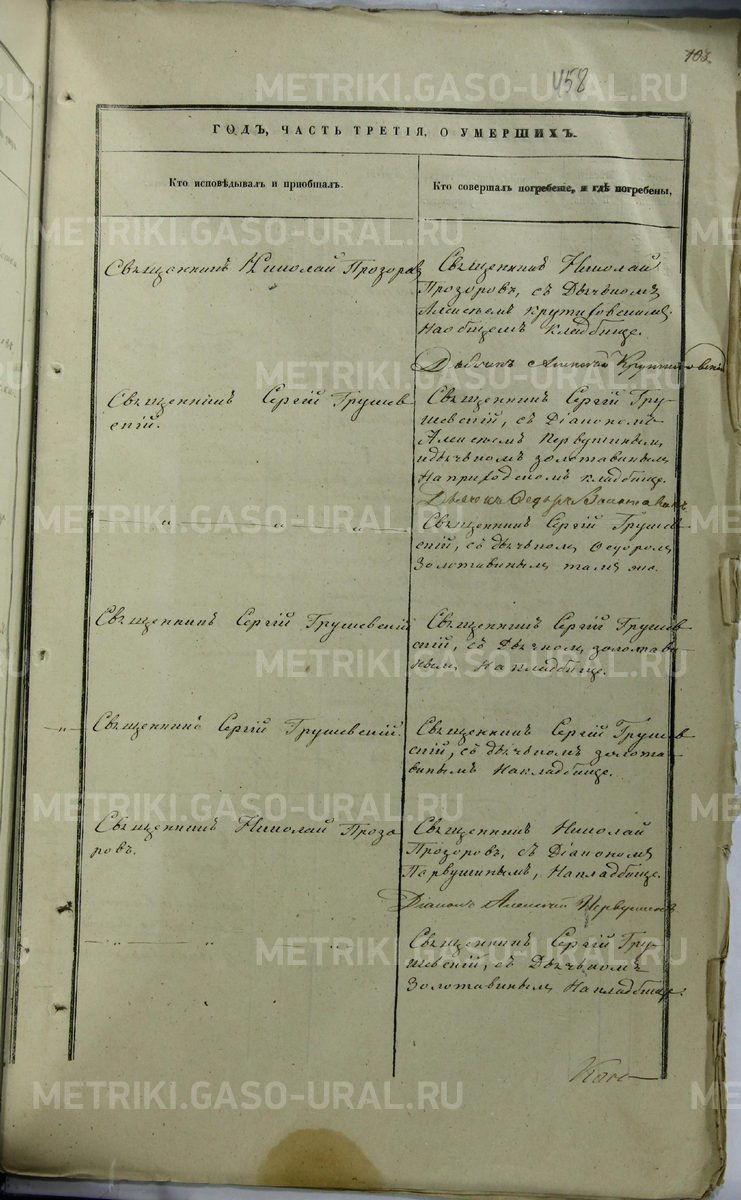 103
458
ГОДЪ, ЧАСТЬ ТРЕТІЯ, О УМЕРШИХЪ.
Кто исповѣдывалъ и пріобщалъ.
Кто совершалъ погребеніе, и гдѣ погребены,
Священникъ Николай Прозоровъ
Священникъ Николай
Прозоровъ, съ Дьячкомъ
Алексѣемъ Крутиковскимъ
На общемъ кладбище.
Дьячекъ Алексей
Священникъ Сергій Грушев-
скій.
Священникъ Сергій Гру-
шевскій, съ Діакономъ
Алексѣемъ Первушинымъ
и дьячкомъ Золотавинымъ
На приходскомъ кладбище.
Дьячекъ Федоръ
Священникъ Сергій Грушев-
скій, съ дьячкомъ Федоромъ
Золотавинымъ тамъ же.
Священникъ Сергій Грушевскій
Священникъ Сергій Грушев-
скій, съ Дьячкомъ Золотави-
нымъ На кладбище.
Священникъ Сергій Грушевскій.
Священникъ Сергій Грушев-
скій, съ дьячкомъ Золота-
винымъ На кладбище.
Священникъ Николай Прозо
ровъ.
Священникъ Николай
Прозоровъ, съ Діакономъ
Первушинымъ, На кладбище.
Діаконъ Алексей Первушинъ
Священникъ Сергій Гру-
шевскій, съ Дьячкомъ
Золотавинымъ На кладбище.
METRIKI.GASO-URAL.RU